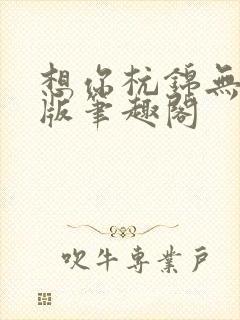 想你杭錦無
版筆趣閣
吹牛專業戶